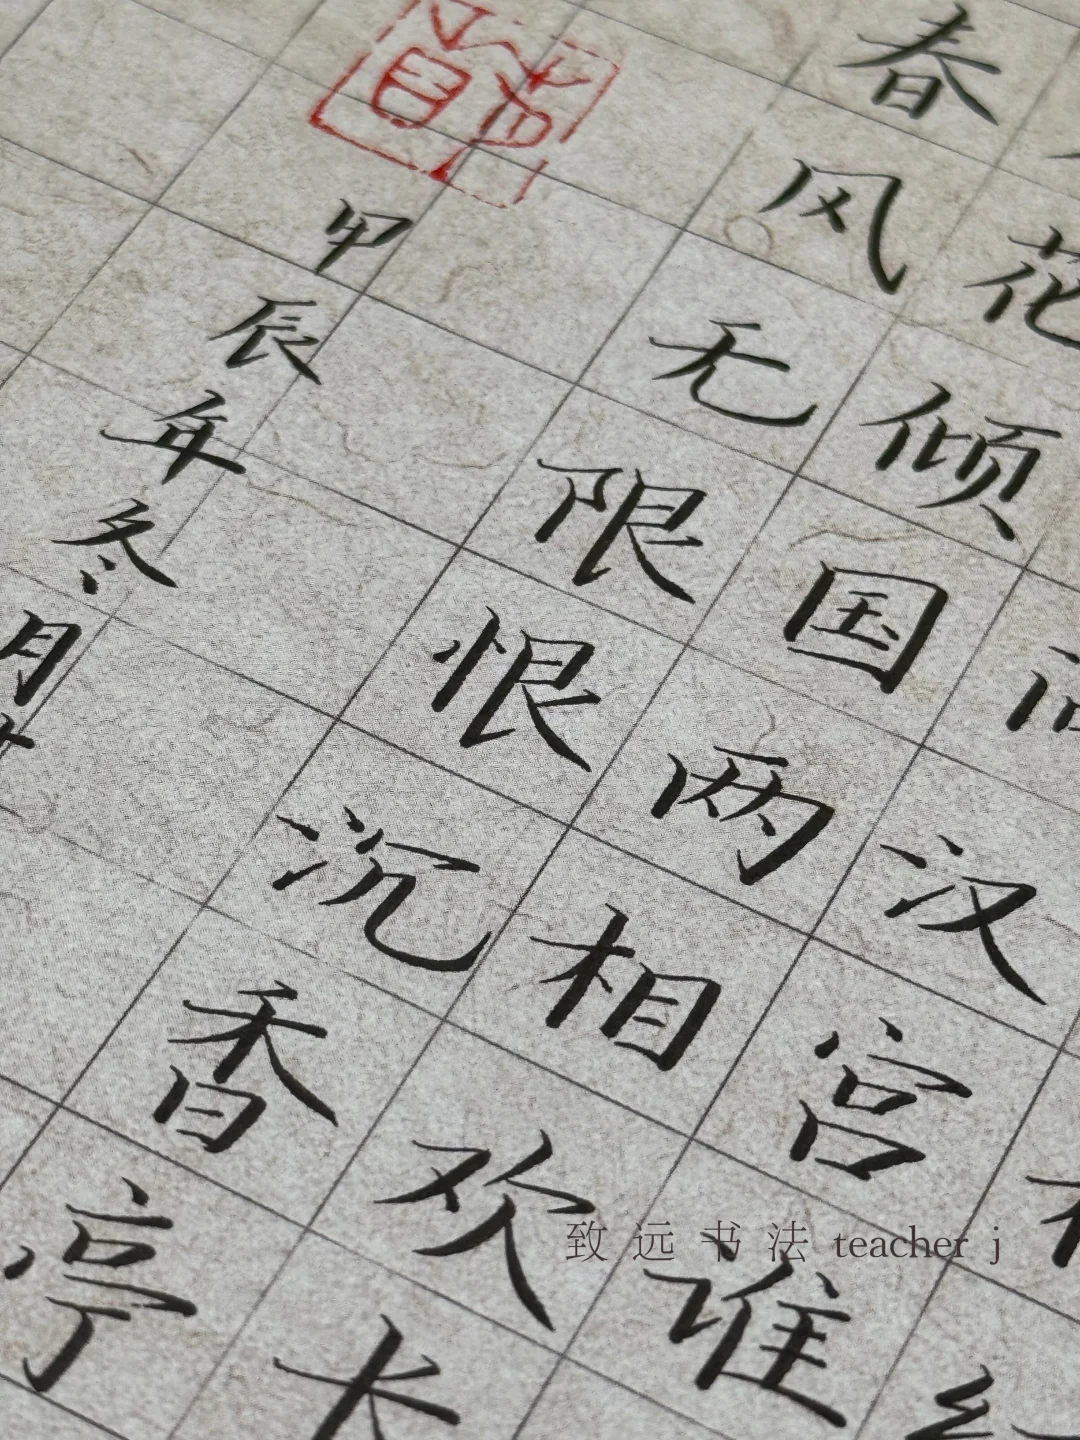 汉宫谁
花倾国两相欢长
春风无限恨沉香亭
甲辰年冬月
致远书法 teacher j